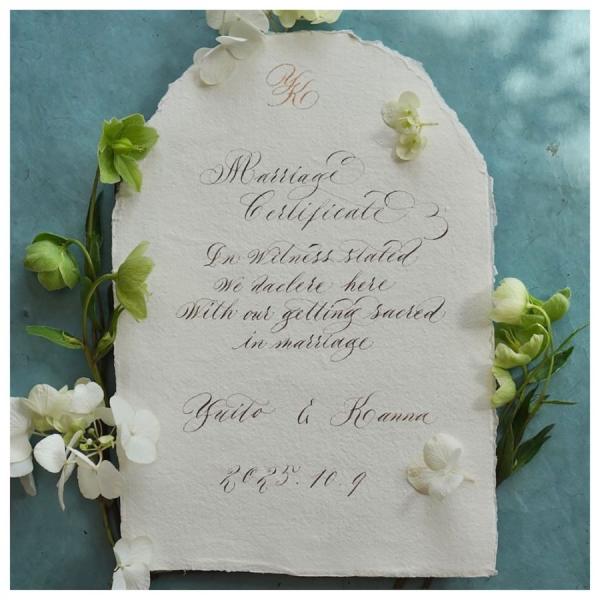 YK
Marriage
Certificate
In witness stated
We daclere here
With our getting sacred
in marriage
Yuito & Kanna
2025.10.9